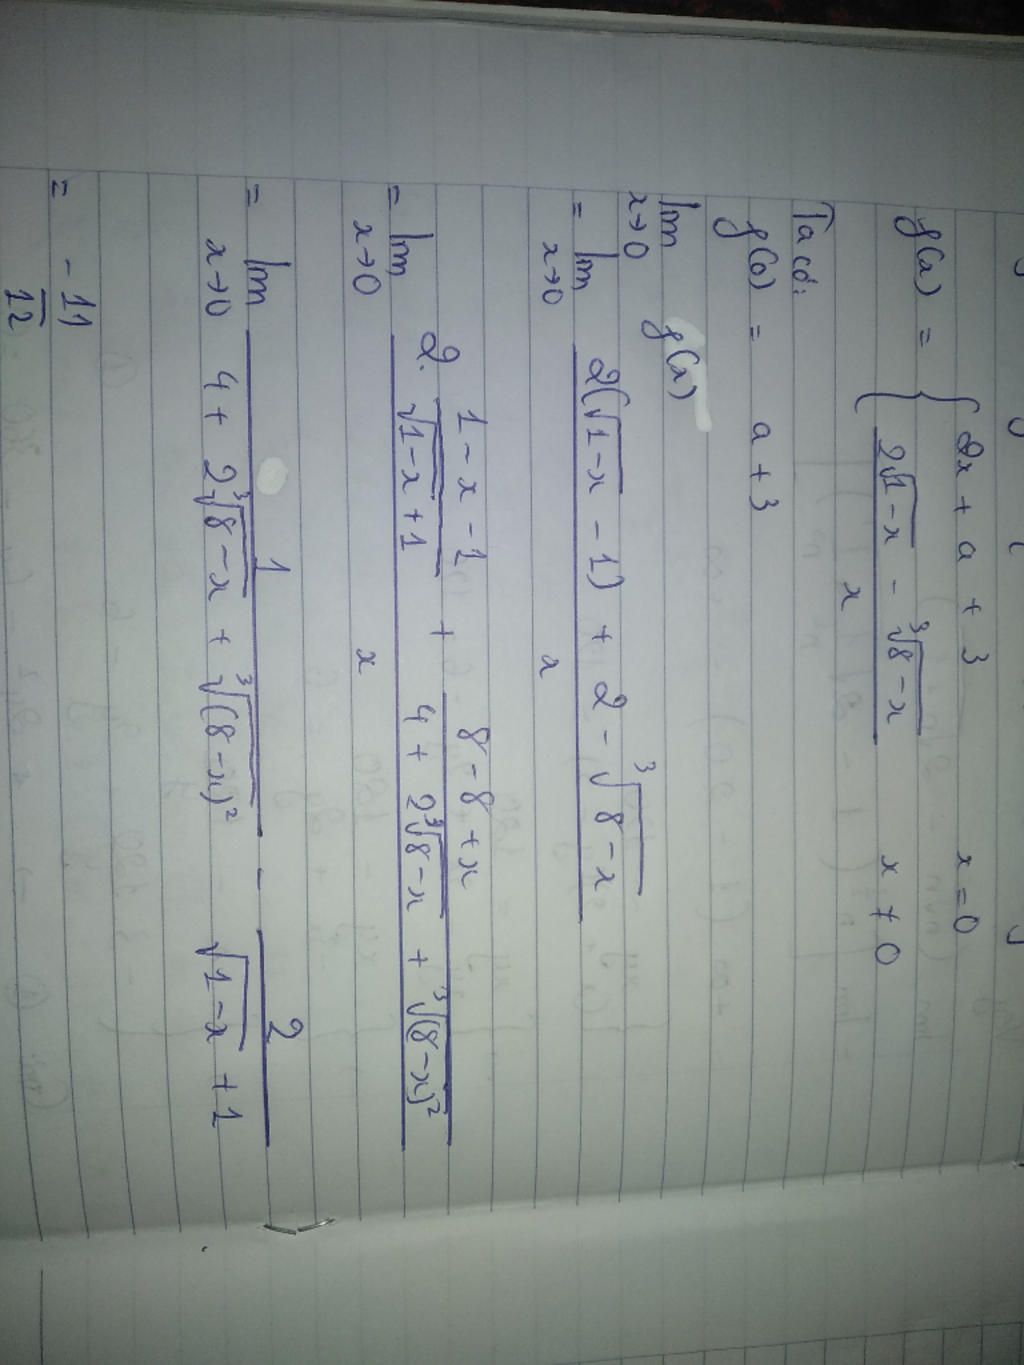 f(x) = { 2x + a + 3 x = 0
(2√(1-x) - ∛(8-x)) / x x ≠ 0
Ta có:
f(0) = a + 3
lim x→0 f(x)
= lim x→0 (2(√(1-x) - 1) + 2 - ∛(8-x)) / x
= lim x→0 (2. (1-x-1)/(√(1-x) + 1) + (8-8+x)/(4 + 2∛(8-x) + ∛(8-x)²)) / x
= lim x→0 1/(4 + 2∛(8-x) + ∛(8-x)²) - 2/(√(1-x) + 1)
= -11/12